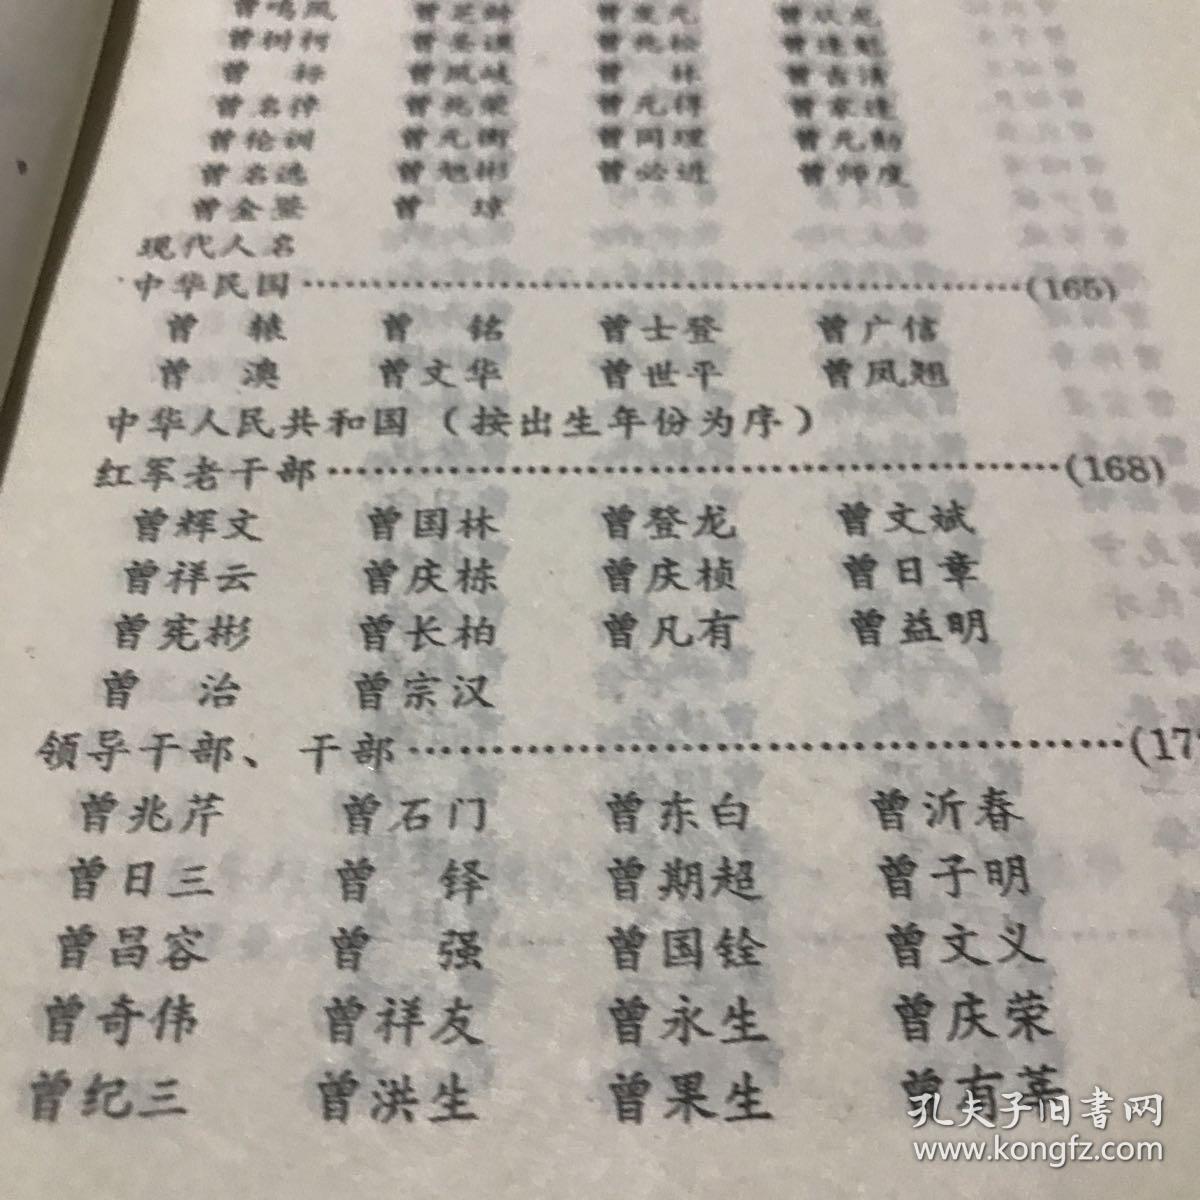 曾鸣凤
曾树柯 曾圣谟 曾兆松 曾逢魁
曾 标 曾凤岐 曾 林 曾吉清
曾名倬 曾兆荣 曾元得 曾家逢
曾伦训 曾元衡 曾同理 曾元勋
曾名选 曾旭彬 曾必进 曾师度
曾金鉴 曾 琼
现代人名
中华民国……(165)
曾 粮 曾 铭 曾士登 曾广信
曾 澳 曾文华 曾世平 曾凤翘
中华人民共和国（按出生年份为序）
红军老干部……(168)
曾辉文 曾国林 曾登龙 曾文斌
曾祥云 曾庆栋 曾庆桢 曾日章
曾宪彬 曾长柏 曾凡有 曾益明
曾 治 曾宗汉
领导干部、干部……(17
曾兆芹 曾石门 曾东白 曾沂春
曾日三 曾 铎 曾期超 曾子明
曾昌容 曾 强 曾国铨 曾文义
曾奇伟 曾祥友 曾永生 曾庆荣
曾纪三 曾洪生 曾果生 曾有莘
孔夫子旧书网
www.kongfz.com